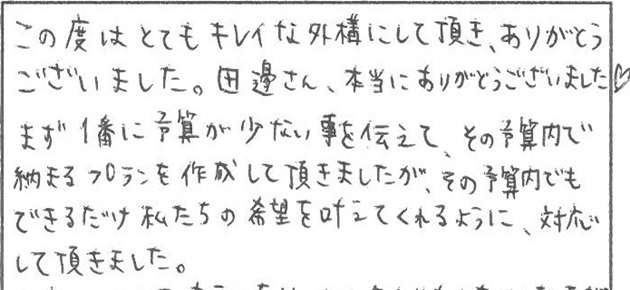 この度はとてもキレイな外構にして頂き、ありがとう
ございました。田邊さん、本当にありがとうございました♡
まず1番に予算が少ない事を伝えて、その予算内で
納まるプランを作成して頂きましたが、その予算内でも
できるだけ私たちの希望を叶えてくれるように、対応
して頂きました。